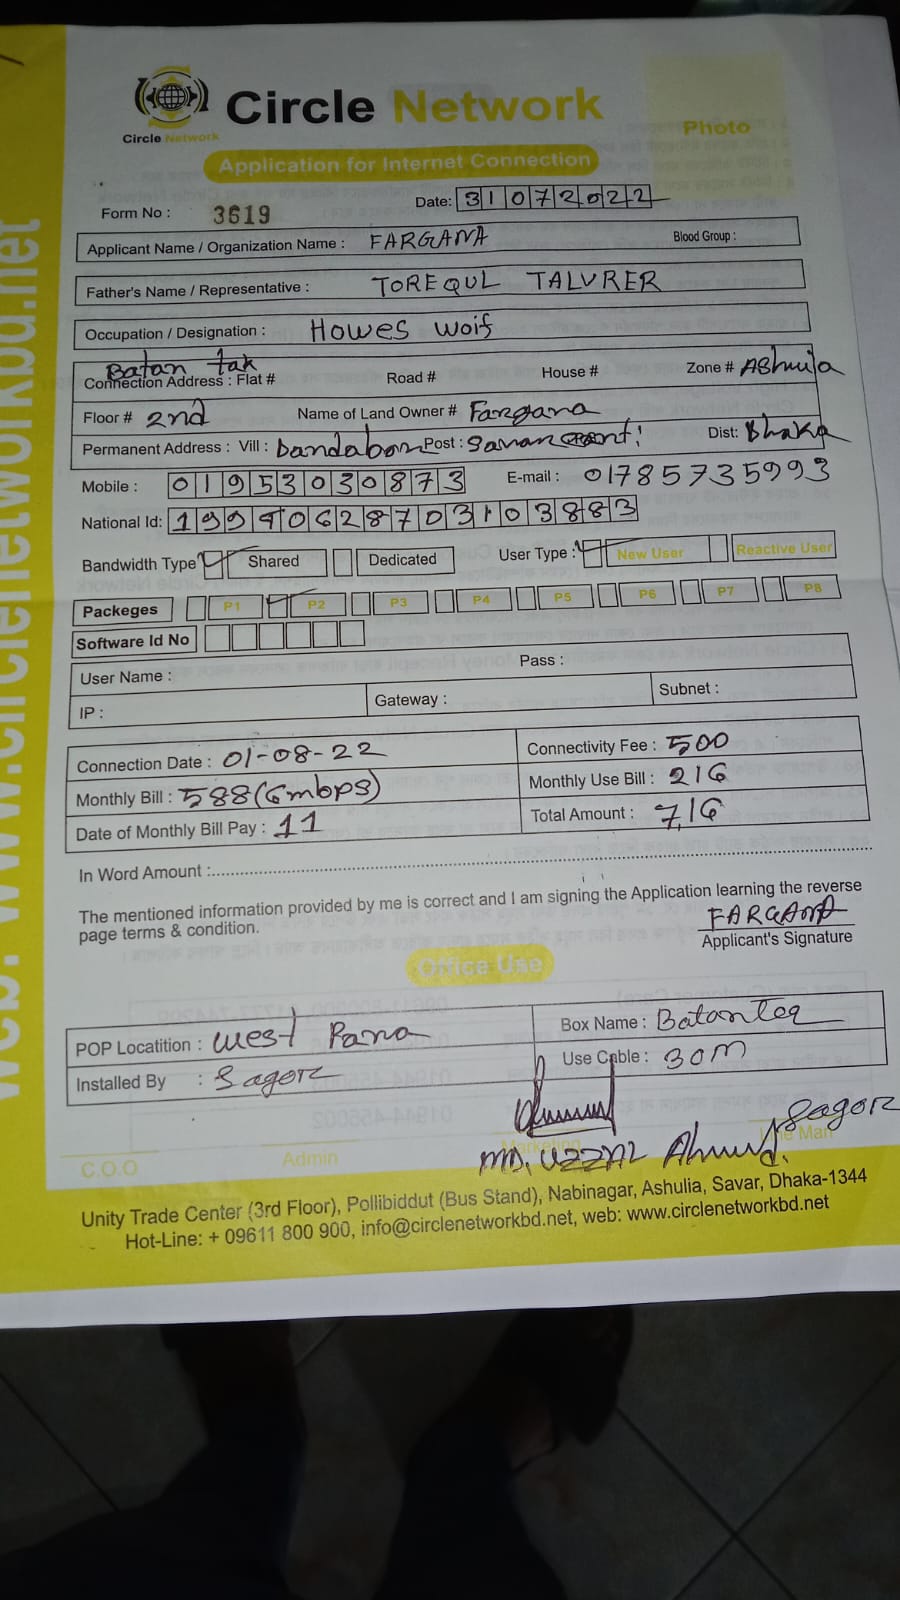 Circle Network
Circle Network
Photo
Application for Internet Connection
Form No : 3619 Date: 31072022
Applicant Name / Organization Name : FARGANA Blood Group :
Father's Name / Representative : TOREQUL TALVRER
Occupation / Designation : Howes Woif
Batan tak
Connection Address : Flat # Road # House # Zone # AShulia
Floor # 2nd Name of Land Owner # Fargana
Permanent Address : Vill : Dandabon Post : Savar Dist: Dhaka
Mobile : 01953030873 E-mail : 01785735993
National Id: 19990628703103883
Bandwidth Type Shared Dedicated User Type : New User Reactive User
Packeges P1 P2 P3 P4 P5 P6 P7 P8
Software Id No
User Name : Pass :
IP : Gateway : Subnet :
Connection Date : 01-08-22 Connectivity Fee : 500
Monthly Bill : 588(6mbps) Monthly Use Bill : 216
Date of Monthly Bill Pay : 11 Total Amount : 716
In Word Amount :
The mentioned information provided by me is correct and I am signing the Application learning the reverse
page terms & condition.
FARGANA
Applicant's Signature
Office Use
POP Locatition : West Para Box Name : Batanteq
Installed By : Sagor Use Cable : 30M
Sagor
C.O.O Admin Marketing Line Man
MD. UZZAL Ahmed.
Unity Trade Center (3rd Floor), Pollibiddut (Bus Stand), Nabinagar, Ashulia, Savar, Dhaka-1344
Hot-Line: + 09611 800 900, info@circlenetworkbd.net, web: www.circlenetworkbd.net
web: www.circlenetworkbd.net